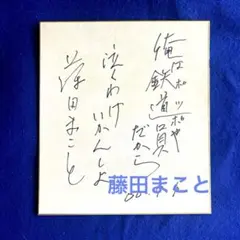 俺はポッポや
鉄道員
だから
泣くわけ
いかんしよ
藤田まこと
藤田まこと